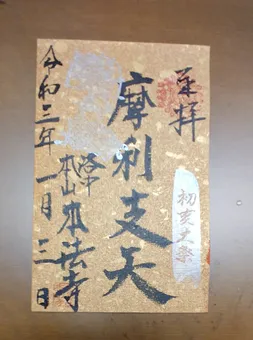 奉拝
初亥大祭
摩利支天
洛中
本山本法寺
令和三年一月三日